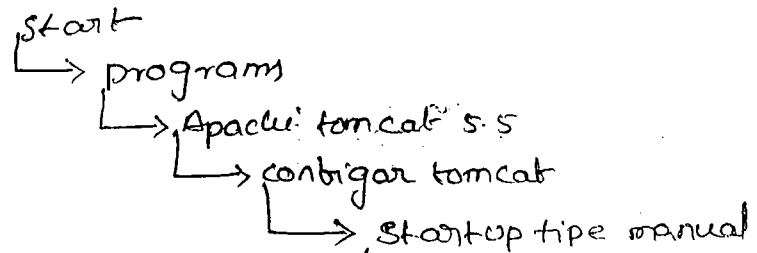 Start
programs
Apachi tomcat 5.5
contigar tomcat
Startup tipe manual